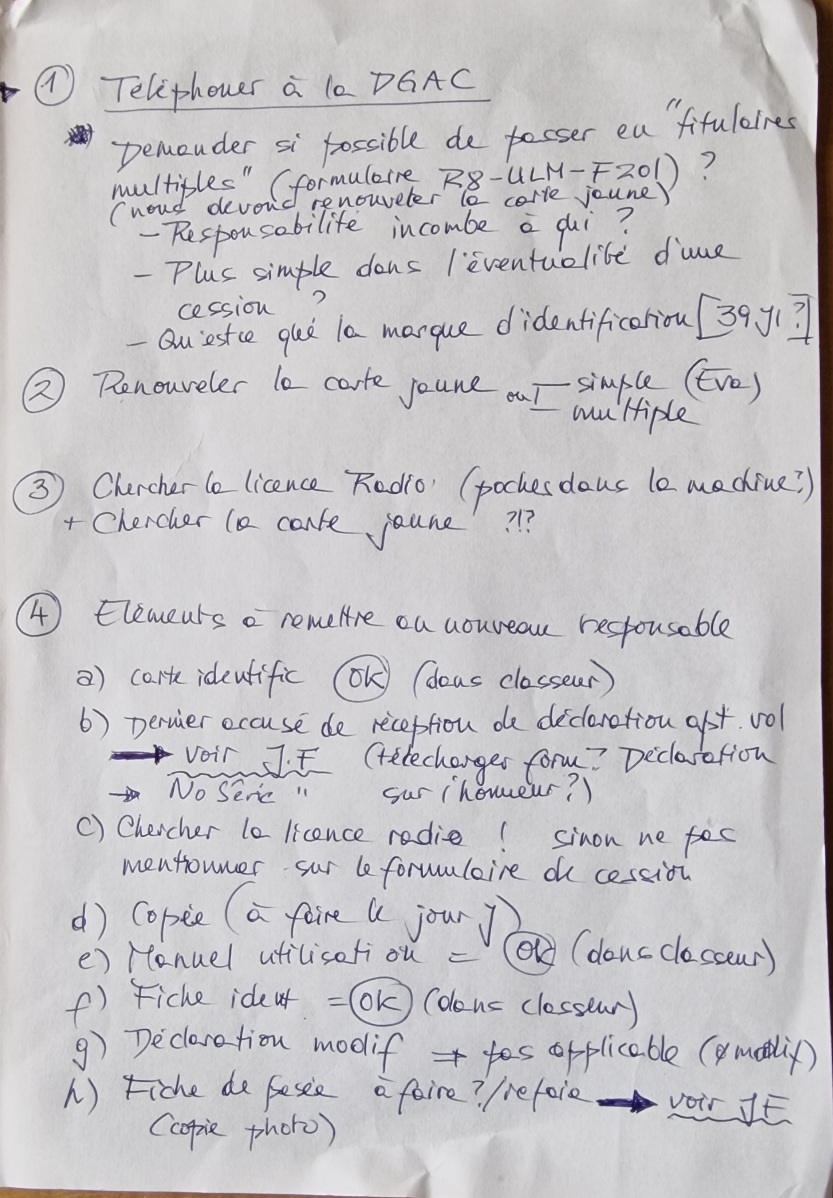 ① Téléphoner à la DGAC
Demander si possible de passer en "titulaires
multiples" (formulaire R8-ULM-F201) ?
(nous devons renouveler la carte jaune)
- Responsabilité incombe à qui ?
- Plus simple dans l'éventualité d'une
cession ?
- Qu'est ce que la marque d'identification [39 ?]
② Renouveler la carte jaune ou simple (Eva)
multiple
③ Chercher la licence Radio (poches dans la machine?)
+ Chercher la carte jaune ?!?
④ Eléments à remettre au nouveau responsable
a) carte identific OK (dans classeur)
b) Dernier accusé de réception de déclaration apt. vol
→ voir J.F (télécharger form? Déclaration
→ No Série " sur l'honneur?)
c) Chercher la licence radio ! sinon ne pas
mentionner sur le formulaire de cession
d) Copie (à faire le jour J)
e) Manuel utilisation = OK (dans classeur)
f) Fiche ident = OK (dans classeur)
g) Déclaration modif → pas applicable (∅ modif)
h) Fiche de pesée à faire ?/refaire → voir JF
(copie photo)